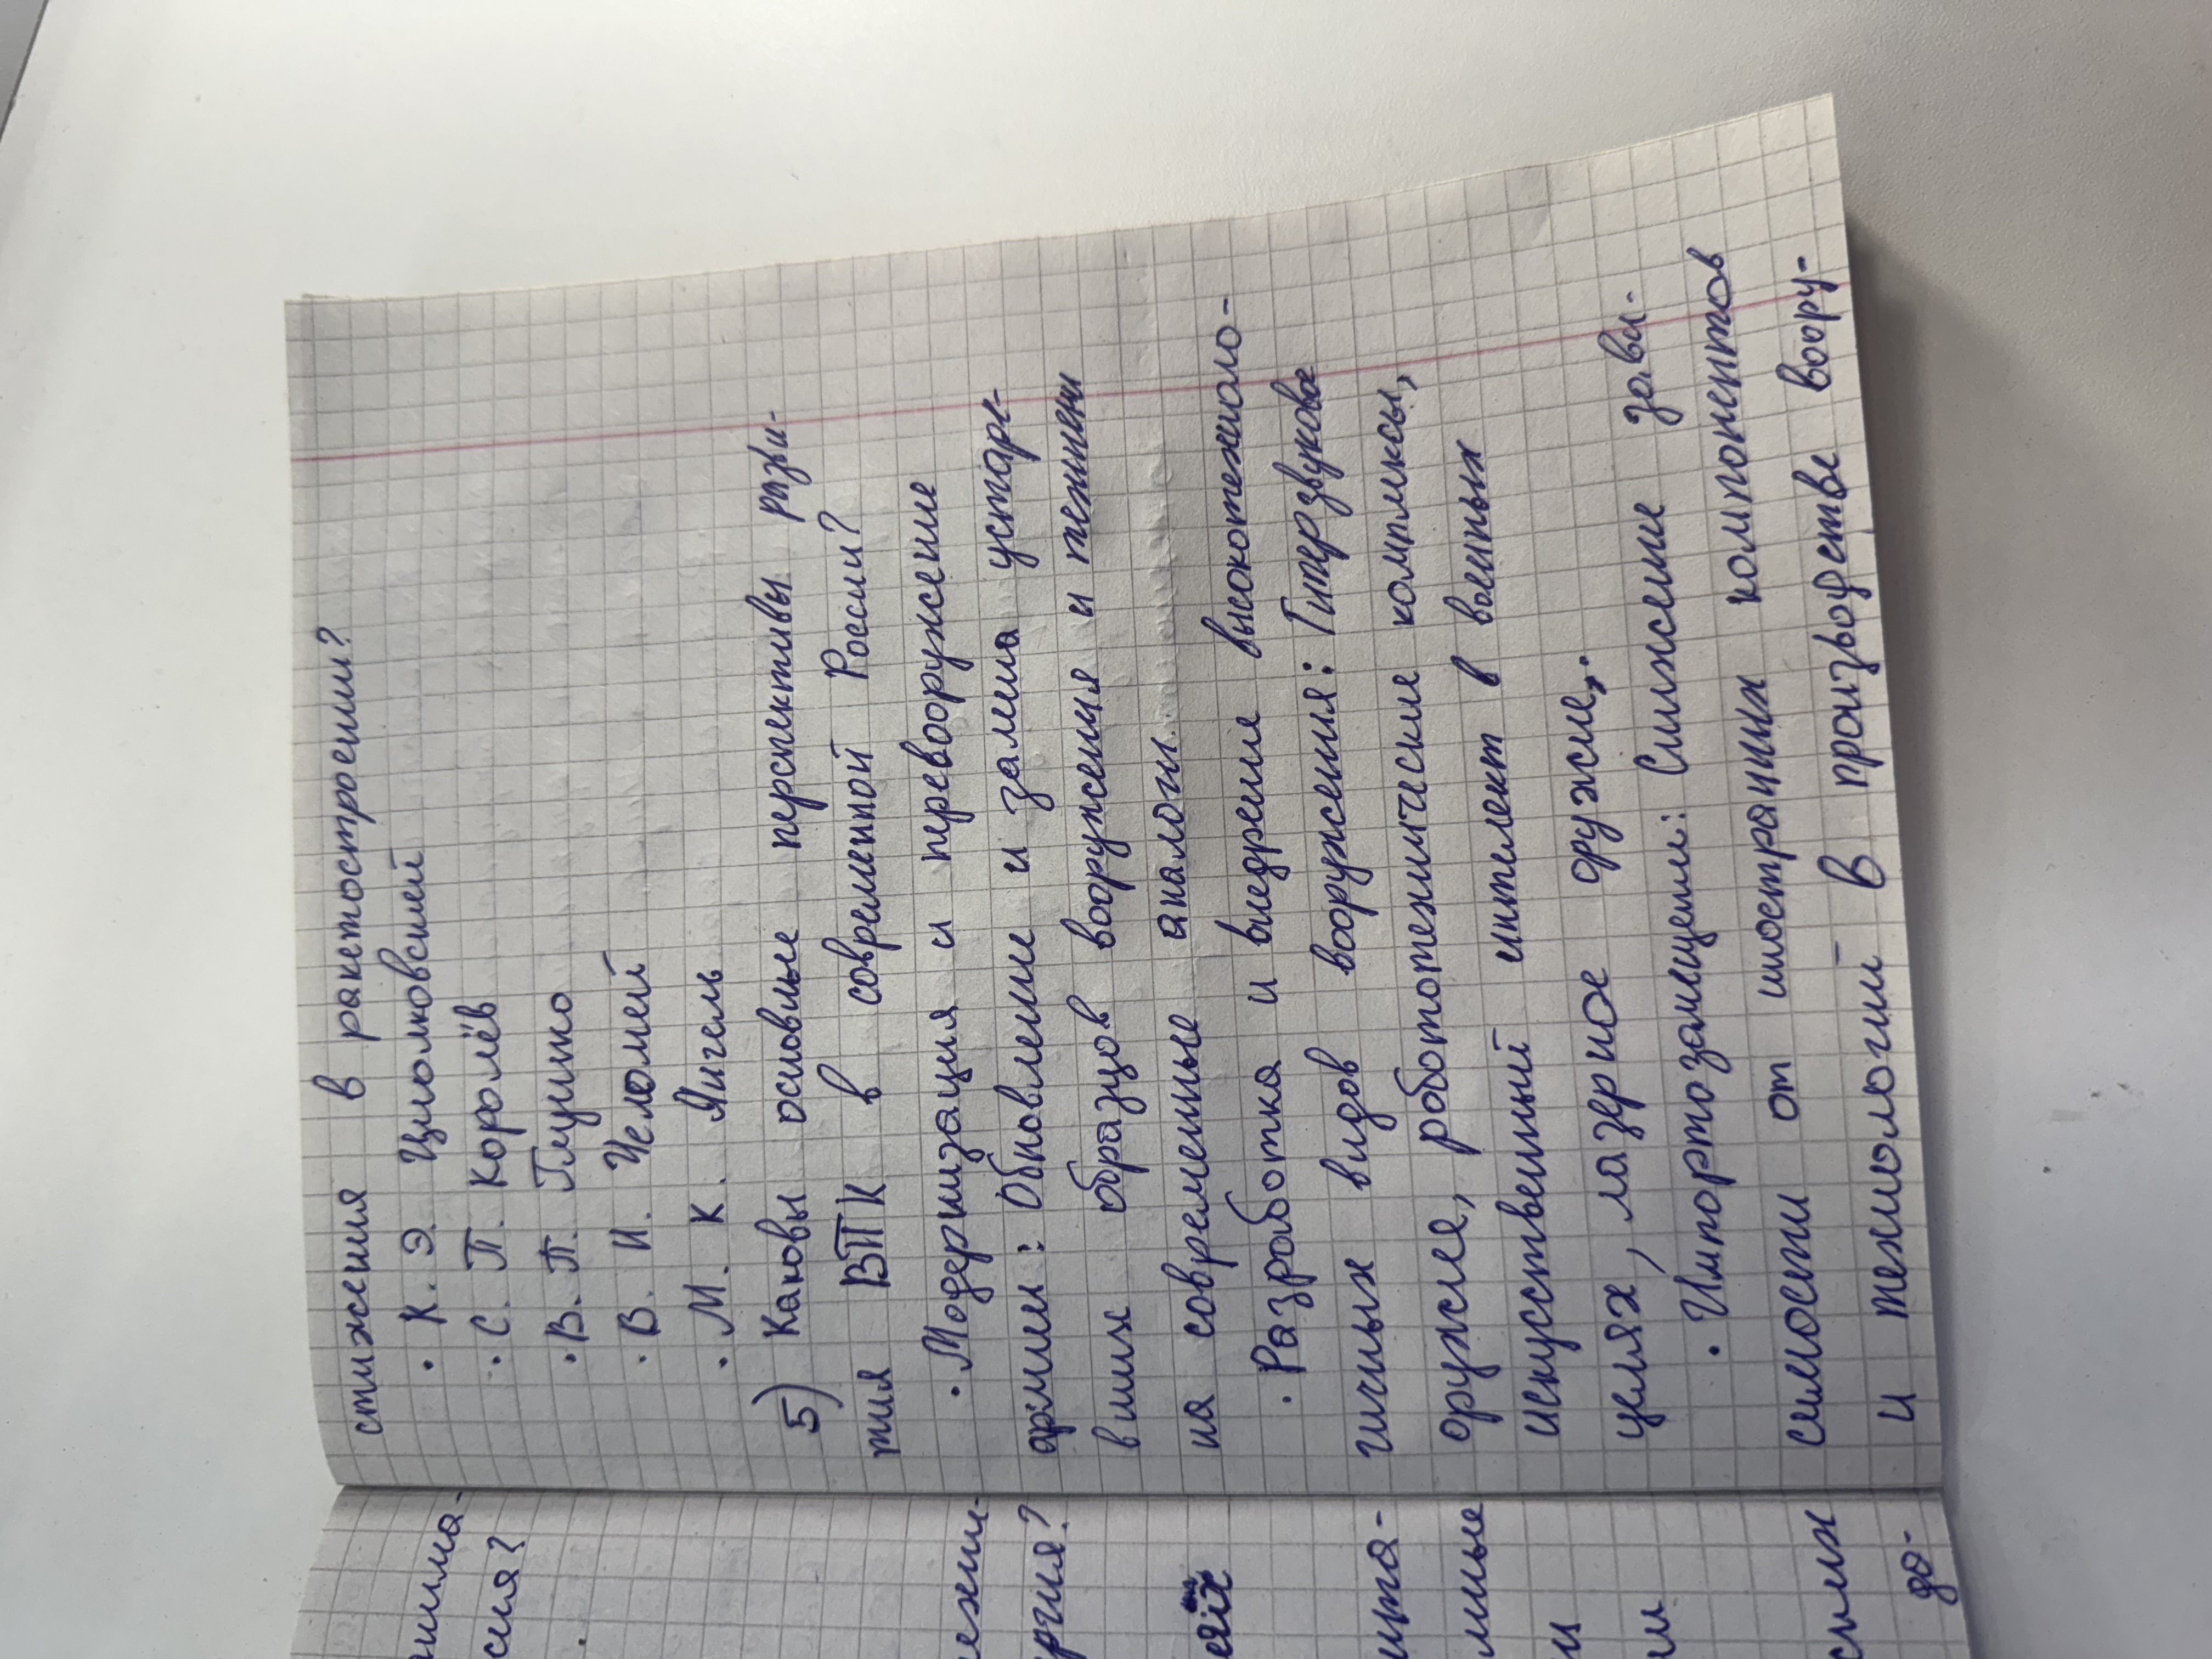 стижения в ракетостроении?
· К. Э. Циолковский
· С. П. Королёв
· В. П. Глушко
· В. И. Челомей
· М. К. Янгель
5) Каковы основные перспективы разви-
тия ВПК в современной России?
· Модернизация и перевооружение
армии: Обновление и замена устаре-
вших образцов вооружения и техники
на современные аналоги.
· Разработка и внедрение высокотехноло-
гичных видов вооружения: Гиперзвуковое
оружие, робототехнические комплексы,
искусственный интелект в военных
целях, лазерное оружие,.
· Импортозамещени: Снижение зави-
симости от иностранных компонентов
и технологий в производстве воору-
сия?
ргия?
да-